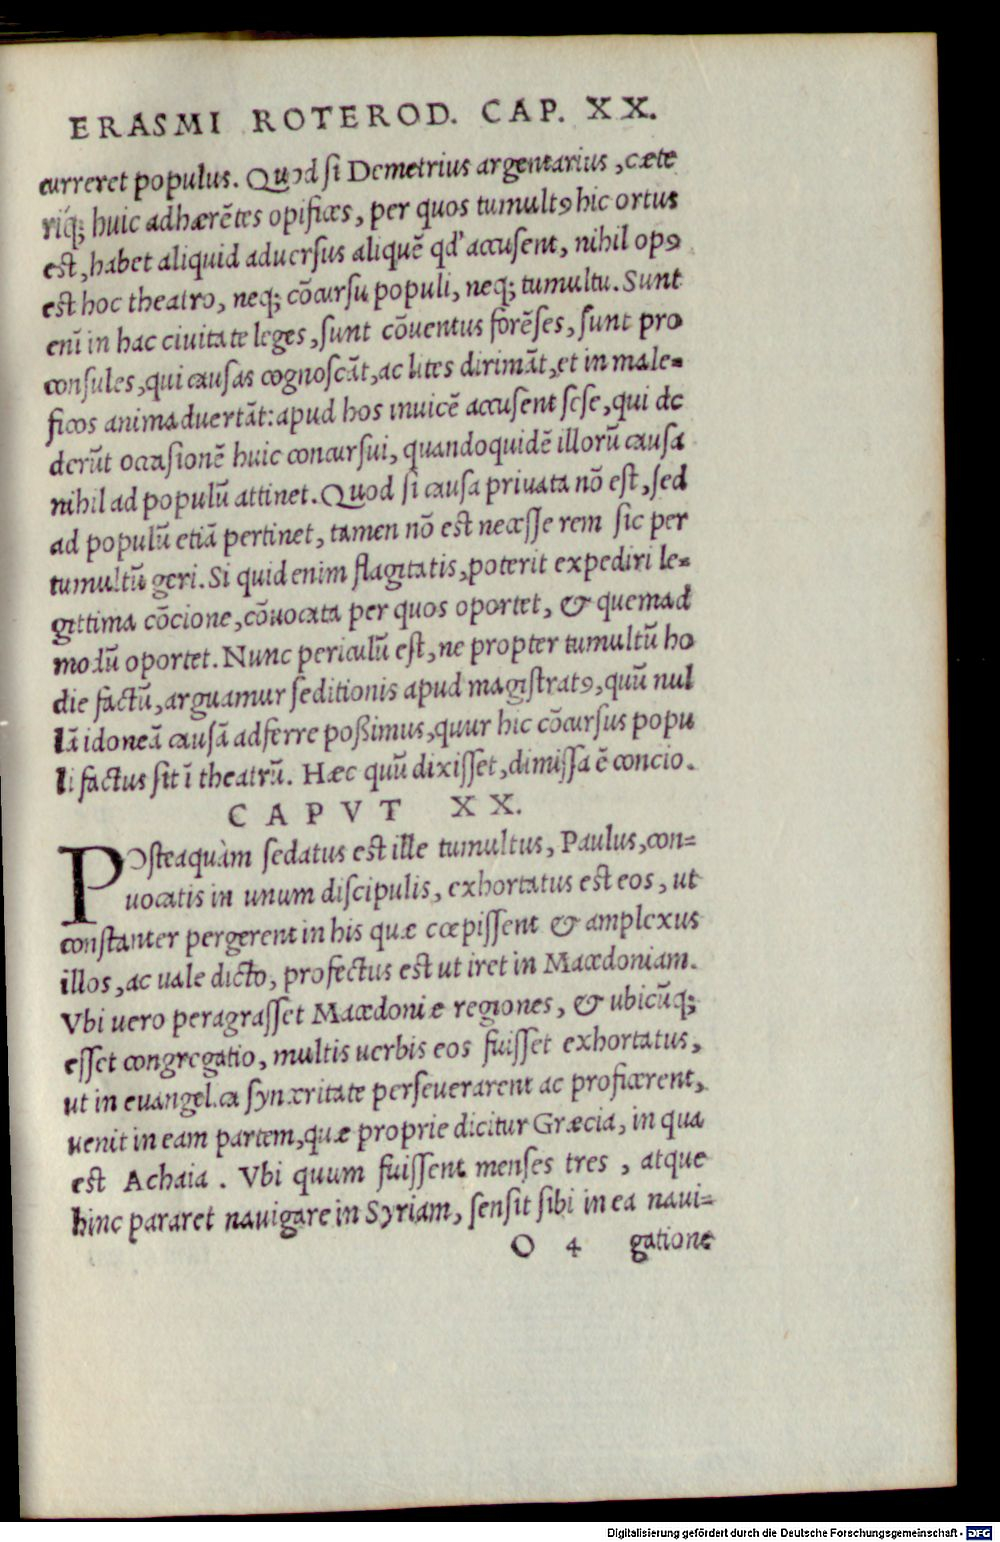 ERASMI ROTEROD. CAP. XX.
curreret populus. Quod si Demetrius argentarius, cæte
riq́; huic adhærẽtes opifices, per quos tumultꝰ hic ortus
est, habet aliquid aduersus aliquẽ qd' accusent, nihil opꝰ
est hoc theatro, neq; cõcursu populi, neq; tumultu. Sunt
enĩ in hac ciuitate leges, sunt cõuentus forẽses, sunt pro
consules, qui causas cognoscãt, ac lites dirimãt, et in male=
ficos animaduertãt: apud hos inuicẽ accusent sese, qui de
derũt occasionẽ huic concursui, quandoquidẽ illorũ causa
nihil ad populũ attinet. Quod si causa priuata nõ est, sed
ad populũ etiã pertinet, tamen nõ est necesse rem sic per
tumultũ geri. Si quid enim flagitatis, poterit expediri le=
gittima cõcione, cõuocata per quos oportet, & quemad
modũ oportet. Nunc periculũ est, ne propter tumultũ ho
die factũ, arguamur seditionis apud magistratꝰ, quũ nul
lã idoneã causã adferre poßimus, quur hic cõcursus popu
li factus sit ĩ theatrũ. Hæc quũ dixisset, dimissa ẽ concio.
CAPVT XX.
POsteaquàm sedatus est ille tumultus, Paulus, con=
uocatis in unum discipulis, exhortatus est eos, ut
constanter pergerent in his quæ cœpissent & amplexus
illos, ac uale dicto, profectus est ut iret in Macedoniam.
Vbi uero peragrasset Macedoniæ regiones, & ubicũq;
esset congregatio, multis uerbis eos fuisset exhortatus,
ut in euangelica synceritate perseuerarent ac proficerent,
uenit in eam partem, quæ proprie dicitur Græcia, in qua
est Achaia. Vbi quum fuissent menses tres, atque
hinc pararet nauigare in Syriam, sensit sibi in ea naui=
O 4 gatione
Digitalisierung gefördert durch die Deutsche Forschungsgemeinschaft - DFG